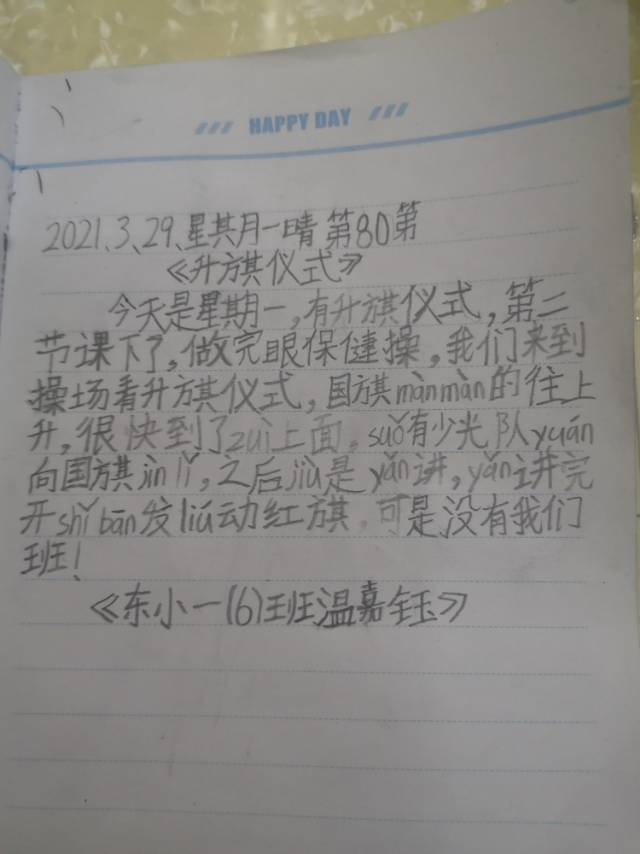 HAPPY DAY
2021、3、29、星其月一晴 第80第
《升旗仪式》
今天是星期一,有升旗仪式,第二
节课下了,做完眼保健操,我们来到
操场看升旗仪式,国旗mànmàn的往上
升,很快到了zuì上面。suǒ有少光队yuán
向国旗jìn lǐ,之后jiù是yǎn讲,yǎn讲完
开shǐ bān发liú动红旗。可是没有我们
班!
《东小一(6)班温嘉钰》